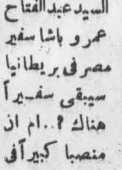 السيد عبد الفتاح
عمرو باشا سفير
مصر فى بريطانيا
سيبقى سفيراً
هناك ?.. ام ان
منصبا كبيراً فى